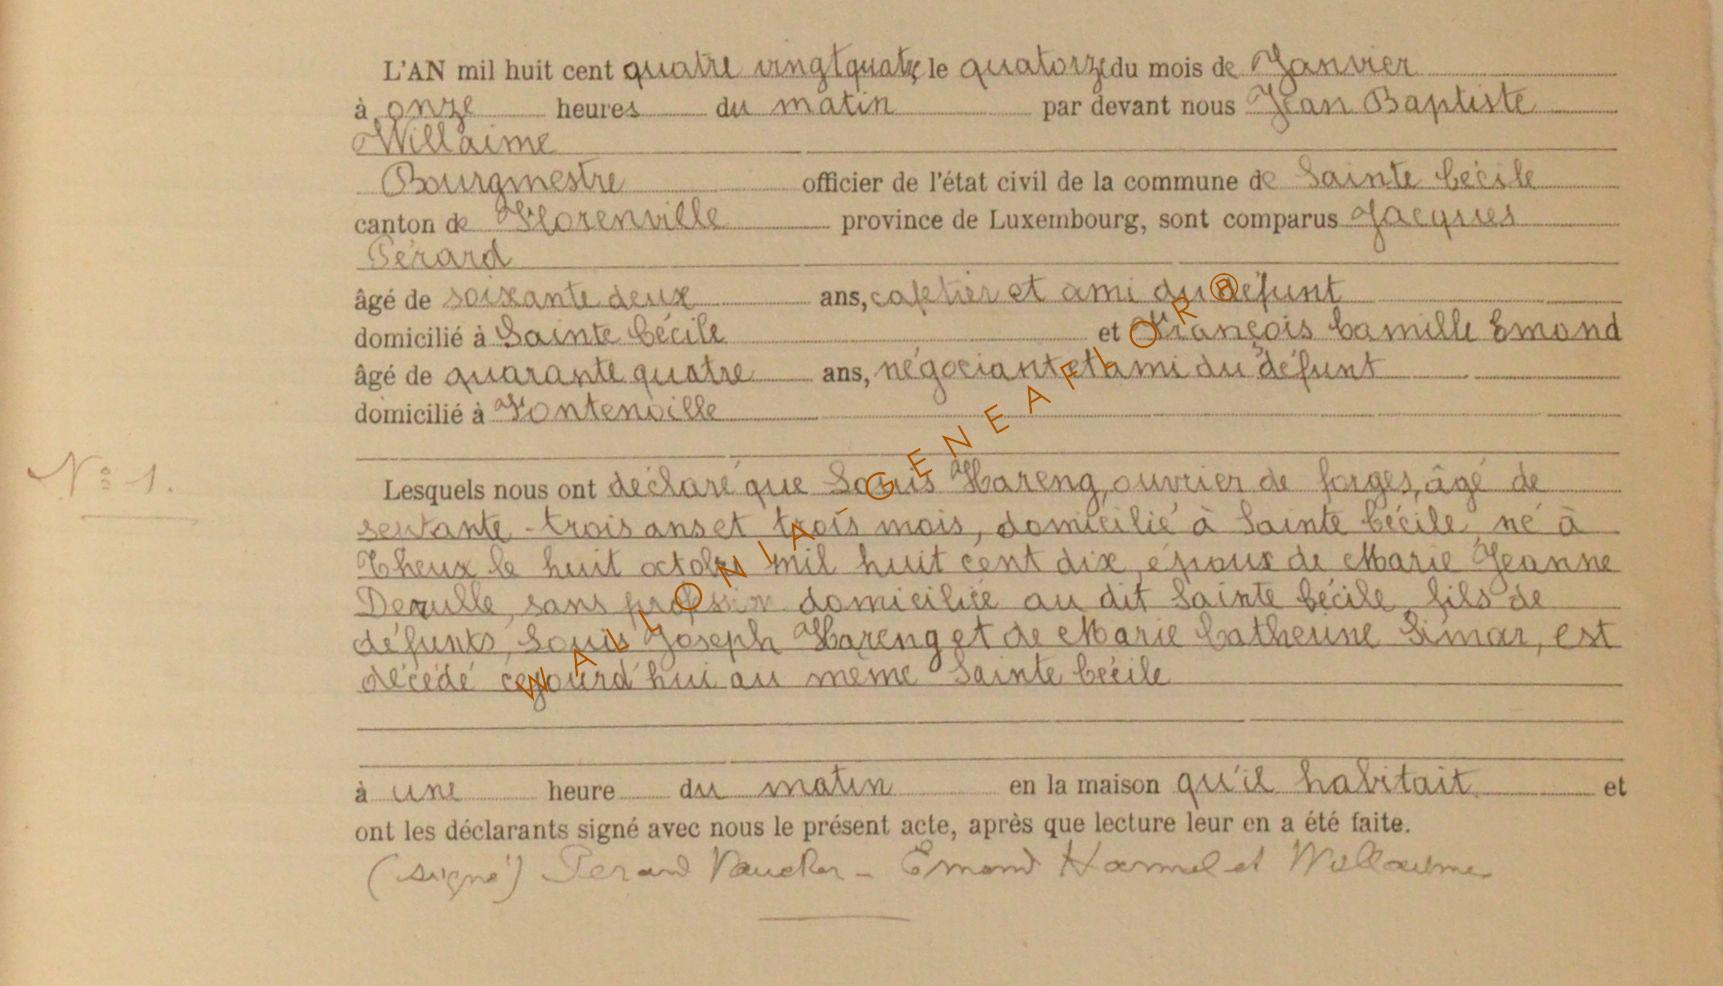 L'AN mil huit cent quatre vingt quatre le quatorze du mois de Janvier
à onze heures du matin par devant nous Jean Baptiste
Willaime
Bourgmestre officier de l'état civil de la commune de Sainte Cécile
canton de Florenville province de Luxembourg, sont comparus Jacques
Pérard
âgé de soixante deux ans, cafetier et ami du défunt
domicilié à Sainte Cécile et François Camille Emond
âgé de quarante quatre ans, négociant et ami du défunt
domicilié à Fontenoille
N° 1.
Lesquels nous ont déclaré que Louis Hareng, ouvrier de forges, âgé de
septante - trois ans et trois mois, domicilié à Sainte Cécile, né à
Theux le huit octobre mil huit cent dix, époux de Marie Jeanne
sans profession domiciliée au dit Sainte Cécile, fils de
défunts, Louis Joseph Hareng et de Marie Catherine Simar, est
décédé cejourd'hui au même Sainte Cécile
à une heure du matin en la maison qu'il habitait et
ont les déclarants signé avec nous le présent acte, après que lecture leur en a été faite.
(signé) Perard - Emond Hamel et Willaime
WALLONIA - GENEAFLOR ®